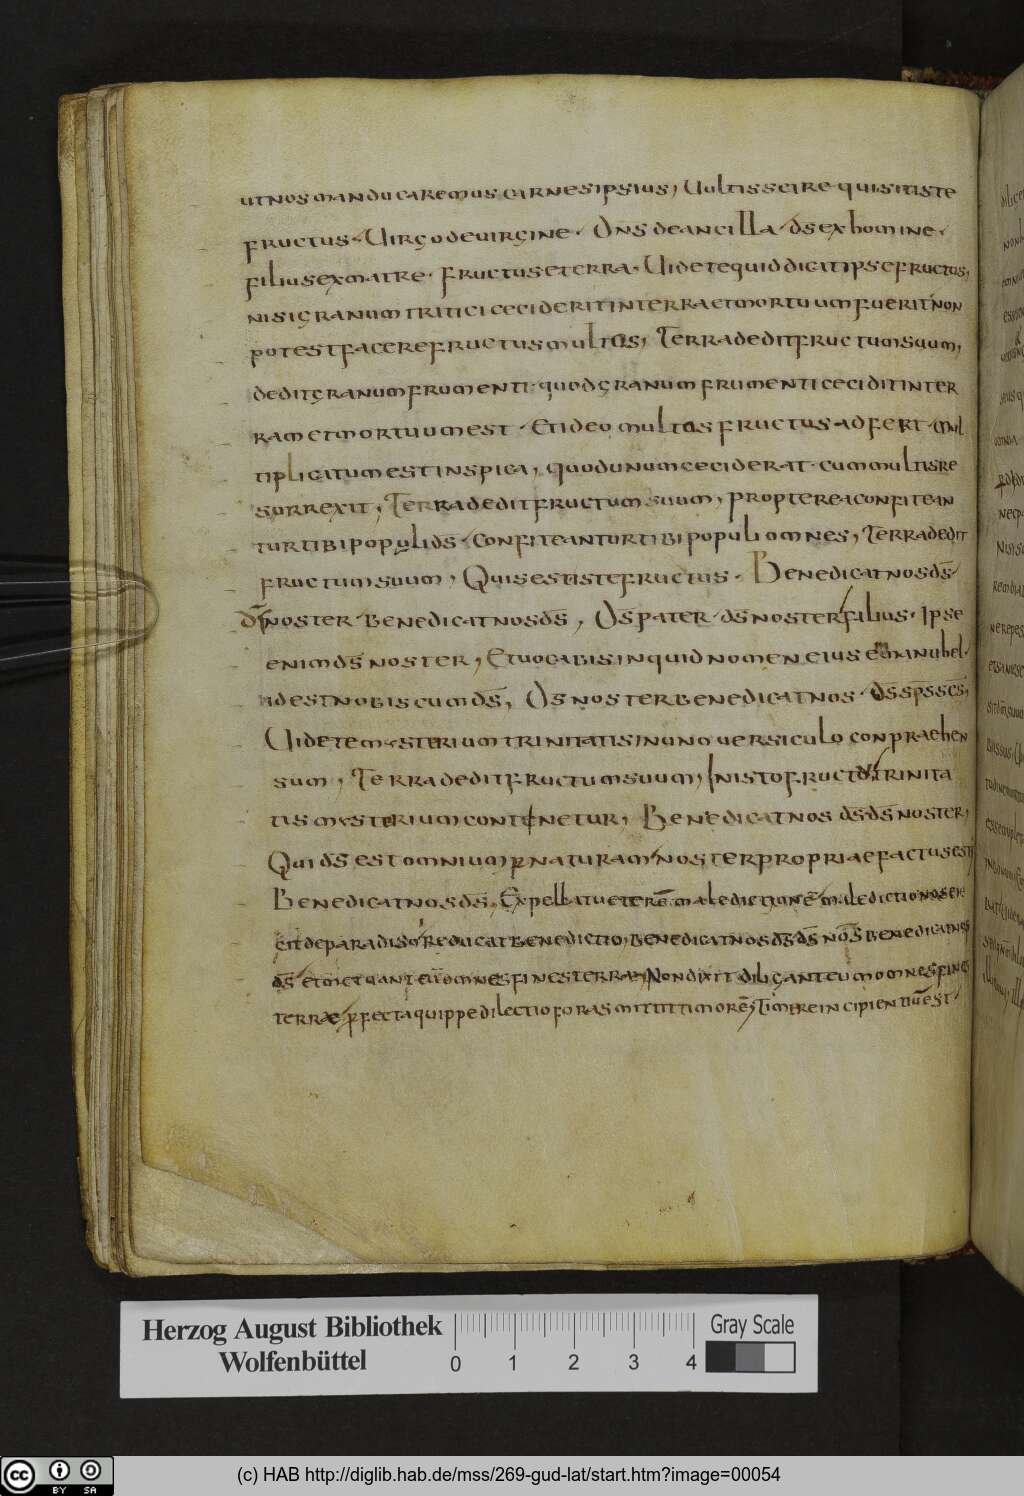 utnosmanducaremus carnesipsius, Uultisscire quisitiste
fructus. Uirgodeuirgine. Dns deancilla. ds exhomine.
filiusexmatre. fructuseterra. Uidetequiddicatipsefructus,
nisigranum tritici cecideritinterraetmortuumfueritnon
potestfacerefructusmultos, Terradeditfructumsuum,
deditgranumfrumenti. quodgranumfrumenticeciditinter
rametmortuumest. Etideo multosfructus adfert. Mul
tiplicatumestinspica, quodunumceciderat. cummultisre
surrexit, Terradeditfructumsuum, Proptereaconfitean
turtibipopulids. Confiteanturtibipopuli omnes, Terradedit
fructumsuum, Quisestistefructus. Benedicatnosds
ds noster Benedicatnosds, Ds pater. ds noster filius. Ipse
enimds noster, Etuocabisinquidnomen eius emanuhel.
idestnobiscumds, Ds nosterbenedicatnos. ds sps scs,
Uidetemysterium trinitatisinuno uersiculo conpraehen
sum, Terradeditfructumsuum, Inistofructu trinita
tis mysterium continetur, Benedicatnos ds ds noster,
Qui ds estomnium p naturam noster propriaefactusest
Benedicatnosds, Expellatueterem maledictionem maledictionoseie
citdeparadiso Reducat benedictio, benedicatnosds ds nos benedicatnos
ds etmetuant eum omnesfinesterrae, Nondixit diligant eum omnesfines
terrae pfectaquippedilectioforasmittittimorem, Timereincipientium est
Herzog August Bibliothek
Wolfenbüttel
0 1 2 3 4
Gray Scale
cc BY SA
(c) HAB http://diglib.hab.de/mss/269-gud-lat/start.htm?image=00054